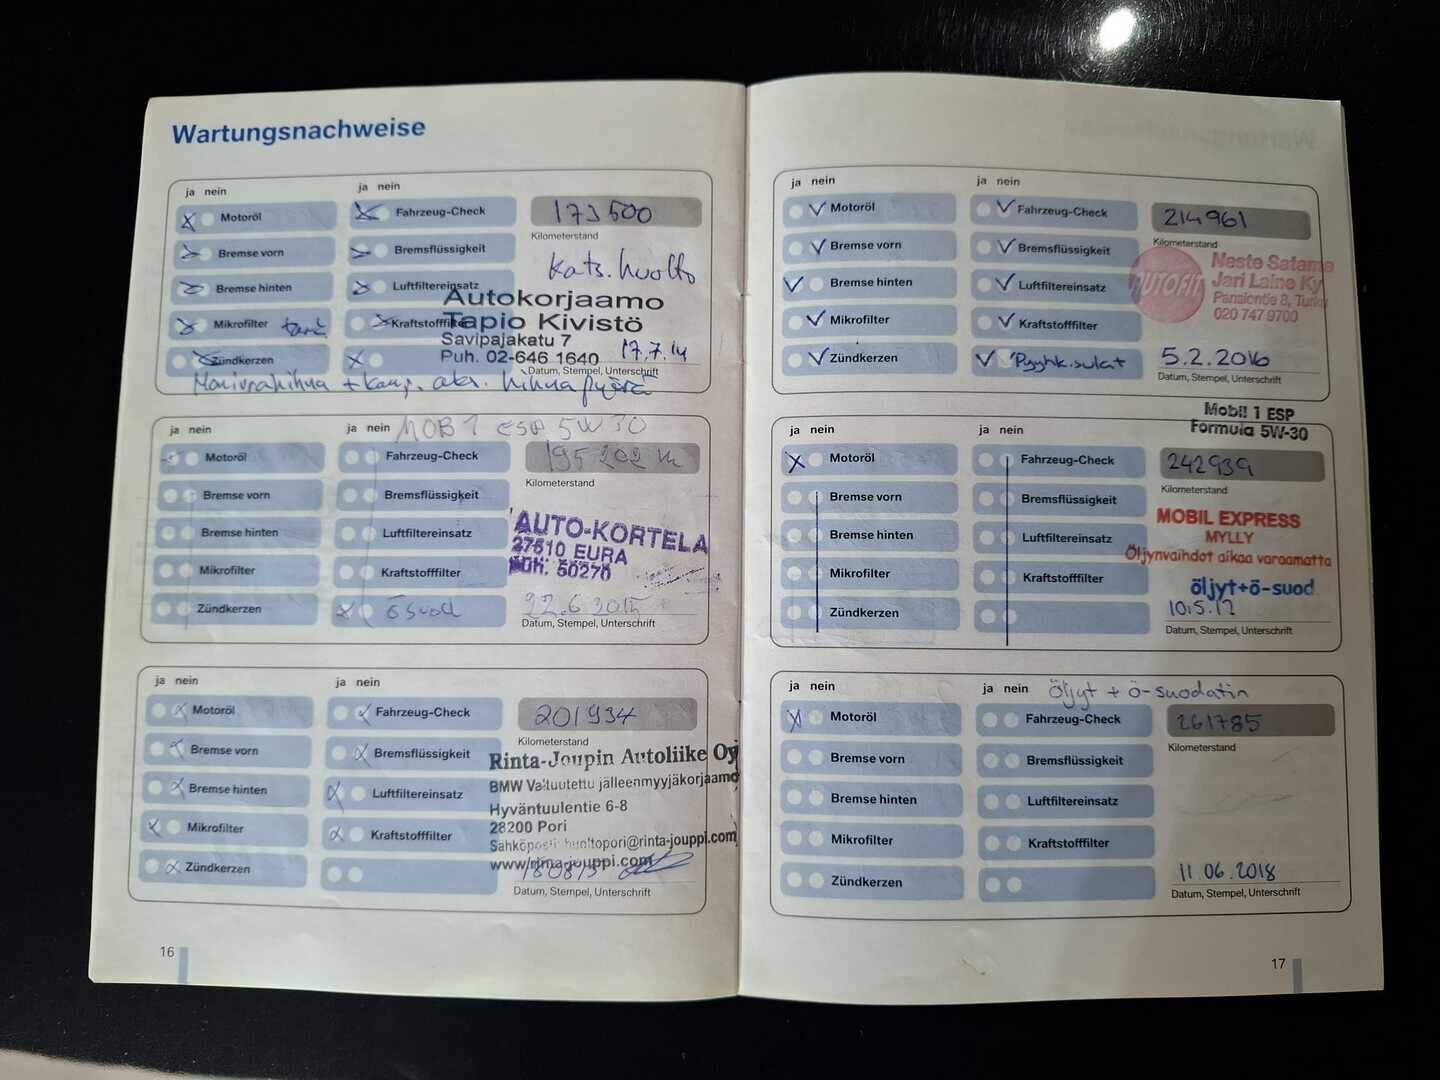 Wartungsnachweise
ja nein
ja nein
Motoröl
Fahrzeug-Check
173500
Kilometerstand
Bremse vorn
Bremsflüssigkeit
kats.huolto
Bremse hinten
Luftfiltereinsatz
Autokorjaamo
Mikrofilter
Kraftstofffilter
Tapio Kivistö
Savipajakatu 7
Zündkerzen
Puh. 02-646 1640
17.7.14
Datum, Stempel, Unterschrift
hihna
ja nein
ja nein
MOB 1 ESP 5W30
Motoröl
Fahrzeug-Check
195202
Kilometerstand
Bremse vorn
Bremsflüssigkeit
AUTO-KORTELA
Bremse hinten
Luftfiltereinsatz
27510 EURA
Puh. 50270
Mikrofilter
Kraftstofffilter
Zündkerzen
ö suod
22.6.2015
Datum, Stempel, Unterschrift
ja nein
ja nein
Motoröl
Fahrzeug-Check
201934
Kilometerstand
Bremse vorn
Bremsflüssigkeit
Rinta-Joupin Autoliike Oy
BMW Valtuutettu jälleenmyyjäkorjaamo
Bremse hinten
Luftfiltereinsatz
Hyväntuulentie 6-8
28200 Pori
Mikrofilter
Kraftstofffilter
Sähköposti: huoltopori@rinta-jouppi.com
www.rinta-jouppi.com
Zündkerzen
180815
Datum, Stempel, Unterschrift
16
ja nein
ja nein
Motoröl
Fahrzeug-Check
214961
Kilometerstand
Bremse vorn
Bremsflüssigkeit
AUTOFIT
Neste Satama
Jari Laine Ky
Pansiontie 8, Turku
020 747 9700
Bremse hinten
Luftfiltereinsatz
Mikrofilter
Kraftstofffilter
Zündkerzen
Pyyhk.sulat
5.2.2016
Datum, Stempel, Unterschrift
Mobil 1 ESP
Formula 5W-30
ja nein
ja nein
Motoröl
Fahrzeug-Check
242939
Kilometerstand
Bremse vorn
Bremsflüssigkeit
MOBIL EXPRESS
MYLLY
Bremse hinten
Luftfiltereinsatz
Öljynvaihdot aikaa varaamatta
Mikrofilter
Kraftstofffilter
öljyt+ö-suod.
Zündkerzen
10.5.17
Datum, Stempel, Unterschrift
ja nein
ja nein
Öljyt + ö-suodatin
Motoröl
Fahrzeug-Check
261785
Kilometerstand
Bremse vorn
Bremsflüssigkeit
Bremse hinten
Luftfiltereinsatz
Mikrofilter
Kraftstofffilter
Zündkerzen
11.06.2018
Datum, Stempel, Unterschrift
17